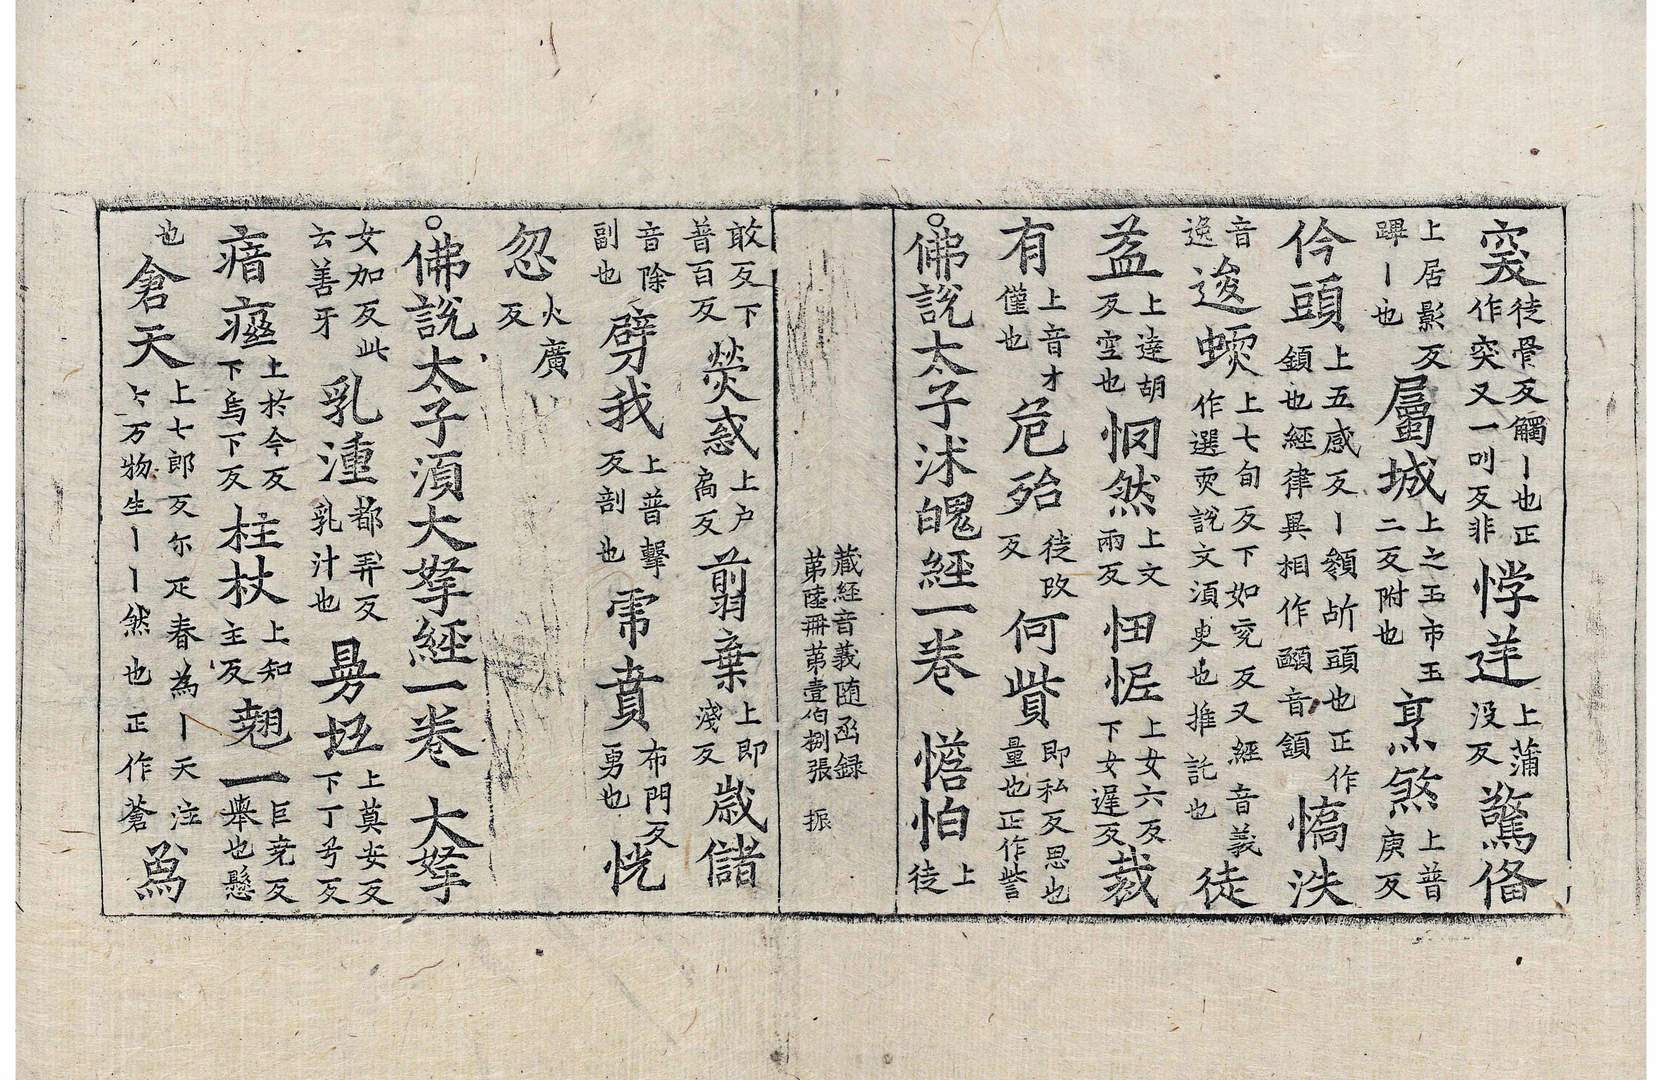 突徒骨反觸丨也正作突又一叫反非 悖逆上蒲没反 驚俻
上居影反踋丨也 屬城上之玉市玉二反附也 烹煞上普庚反
仱頭上五感反丨頷斺頭也正作顉也經律異相作頥音頷 憍泆
音逸 逡蝡上七旬反下如兖反又經音義作選耎說文湏臾也推託也 徒
盖上達胡反空也 惘然上文兩反 忸怩上女六反下女遲反 裁
有上音才僅也 危殆徒改反 何貲即私反思也量也正作訾
○佛說太子沭魄經一卷 憺怕上徒
藏經音義随函録
第陸冊第壹伯捌張 振
敢反下普百反 熒惑上户扃反 翦棄上即淺反 歳儲
音除副也 劈我上普擊反剖也 虎賁布門反勇也 恍
忽火廣反
○佛說太子湏大拏經一卷 大拏
女加反此云善牙 乳湩都弄反乳汁也 㒻㘬上莫安反下丁兮反
瘖瘂上於今反下烏下反 柱杖上知主反 翹一巨尭反舉也懸
也 倉天上七郎反尓疋春為丨天注云万物生丨丨然也正作蒼 爲